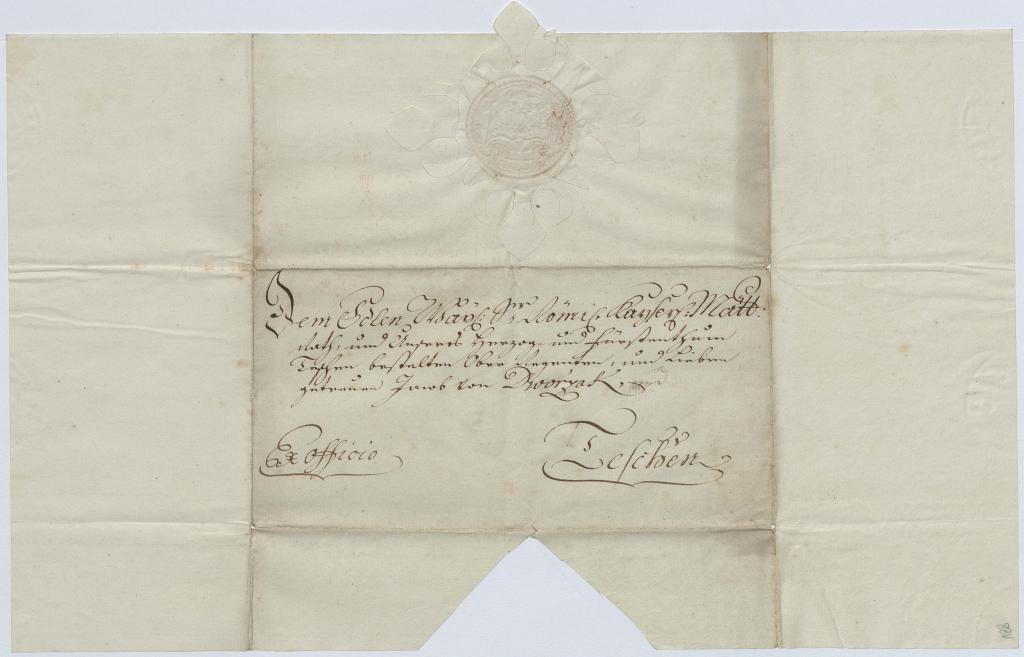 Dem Edlen Röm: Kaysers: Maÿtt:
Rath, und Unseres Herzog- und Fürstenthum
Teschen bestelten Ober Regenten, und Lieben
getreuen Jacob von Dworzak,
Ex officio
Teschen
188